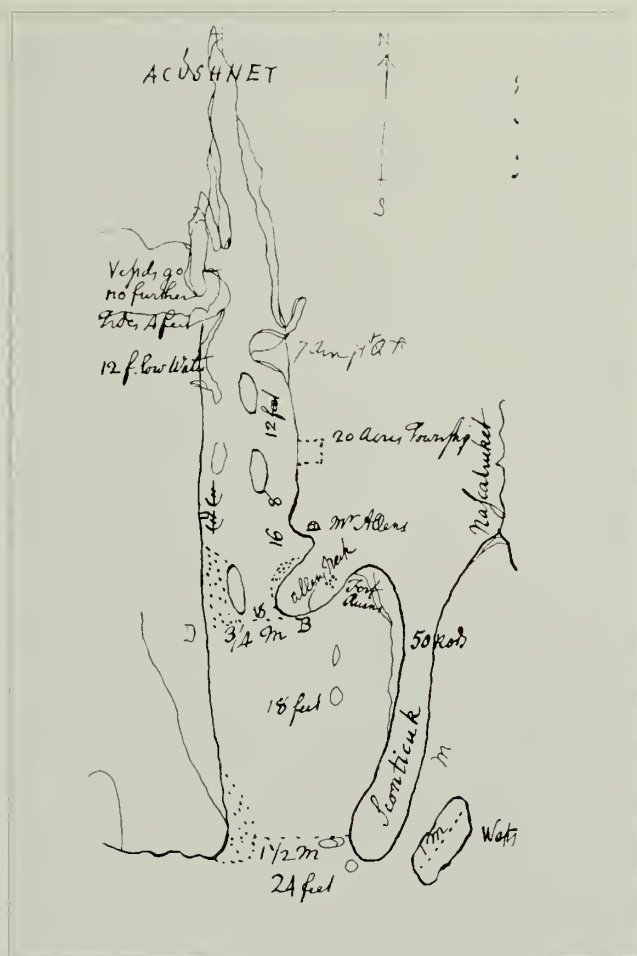 ACUSHNET
N
S
Vessels go
no further
Tides 4 feet
12 f. low Water
12 feet
20 Acres Township
8
16
B Mr Allens
Allens Neck
Fort
Ruins
Nascatuket
18
3/4 M
B
50 Rods
18 feet
Sconticuk
M
M
West
1 1/2 M
24 feet